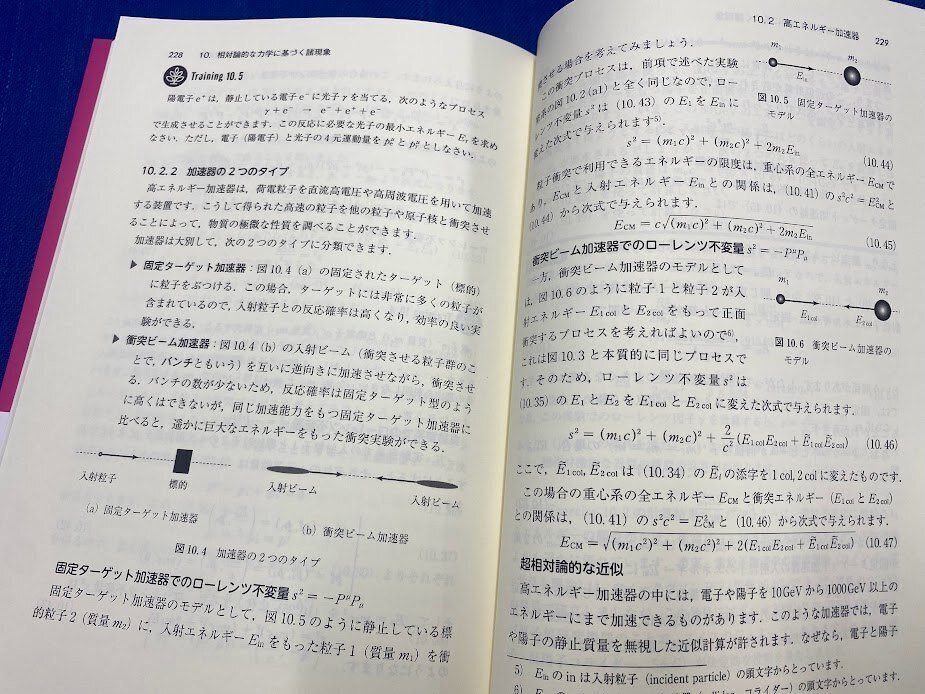 228 10. 相対論的な力学に基づく諸現象
Training 10.5
陽電子 e⁺ は，静止している電子 e⁻ に光子 γ を当てる，次のようなプロセス
γ + e⁻ → e⁻ + e⁺ + e⁻
で生成させることができます．この反応に必要な光子の最小エネルギー Eγ を求め
なさい．ただし，電子（陽電子）と光子の4元運動量を
としなさい．
10.2.2 加速器の2つのタイプ
高エネルギー加速器は，荷電粒子を直流高電圧や高周波電圧を用いて加速
する装置です．こうして得られた高速の粒子を他の粒子や原子核と衝突させ
ることによって，物質の極微な性質を調べることができます．
加速器は大別して，次の2つのタイプに分類できます．
▶ 固定ターゲット加速器：図10.4 (a) の固定されたターゲット（標的）
に粒子をぶつける．この場合，ターゲットには非常に多くの粒子が
含まれているので，入射粒子との反応確率は高くなり，効率の良い実
験ができる．
▶ 衝突ビーム加速器：図10.4 (b) の入射ビーム（衝突させる粒子群のこ
とで，バンチともいう）を互いに逆向きに加速させながら，衝突させ
る．バンチの数が少ないため，反応確率は固定ターゲット型のよう
に高くはできないが，同じ加速能力をもつ固定ターゲット加速器に
比べると，遥かに巨大なエネルギーをもった衝突実験ができる．
入射粒子 標的 入射ビーム 入射ビーム
(a) 固定ターゲット加速器 (b) 衝突ビーム加速器
図10.4 加速器の2つのタイプ
固定ターゲット加速器でのローレンツ不変量 s² = −PᵘPᵤ
固定ターゲット加速器のモデルとして，図10.5のように静止している標
的粒子2（質量 m₂）に，入射エネルギー Ein をもった粒子1（質量 m₁）を衝
10.2 高エネルギー加速器 229
突させる場合を考えてみましょう．
この衝突プロセスは，前項で述べた実験
室系の図10.2 (a1) と全く同じなので，ロー
レンツ不変量 s² は (10.43) の E₁ を Ein に
変えた次式で与えられます⁵⁾．
m₁ m₂
Ein
図10.5 固定ターゲット加速器の
モデル
s² = (m₁c)² + (m₂c)² + 2m₂Ein (10.44)
粒子衝突で利用できるエネルギーの限度は，重心系の全エネルギー ECM で
あり，ECM と入射エネルギー Ein との関係は，(10.41) の s²c² = E²CM と
(10.44) から次式で与えられます．
ECM = c√((m₁c)² + (m₂c)² + 2m₂Ein) (10.45)
衝突ビーム加速器でのローレンツ不変量 s² = −PᵘPᵤ
一方，衝突ビーム加速器のモデルとして
は，図10.6のように粒子1と粒子2が入
射エネルギー E1col と E2col をもって正面
衝突するプロセスを考えればよいので⁶⁾，
これは図10.3と本質的に同じプロセスで
す．そのため，ローレンツ不変量 s² は
m₁ m₂
E1col E2col
図10.6 衝突ビーム加速器の
モデル
(10.35) の E₁ と E₂ を E1col と E2col に変えた次式で与えられます．
s² = (m₁c)² + (m₂c)² + 2/c² (E1colE2col + Ē1colĒ2col) (10.46)
ここで，Ē1col, Ē2col は (10.34) の Ēi の添字を 1col, 2col に変えたものです．
この場合の重心系の全エネルギー ECM と衝突エネルギー (E1col と E2col)
との関係は，(10.41) の s²c² = E²CM と (10.46) から次式で与えられます．
ECM = √((m₁c²)² + (m₂c²)² + 2(E1colE2col + Ē1colĒ2col)) (10.47)
超相対論的な近似
高エネルギー加速器の中には，電子や陽子を10GeVから1000GeV以上の
エネルギーにまで加速できるものがあります．このような加速器では，電子
や陽子の静止質量を無視した近似計算が許されます．なぜなら，電子と陽子
5) Ein の in は入射粒子 (incident particle) の頭文字からとっています．
コライダー) の頭文字からとっています．